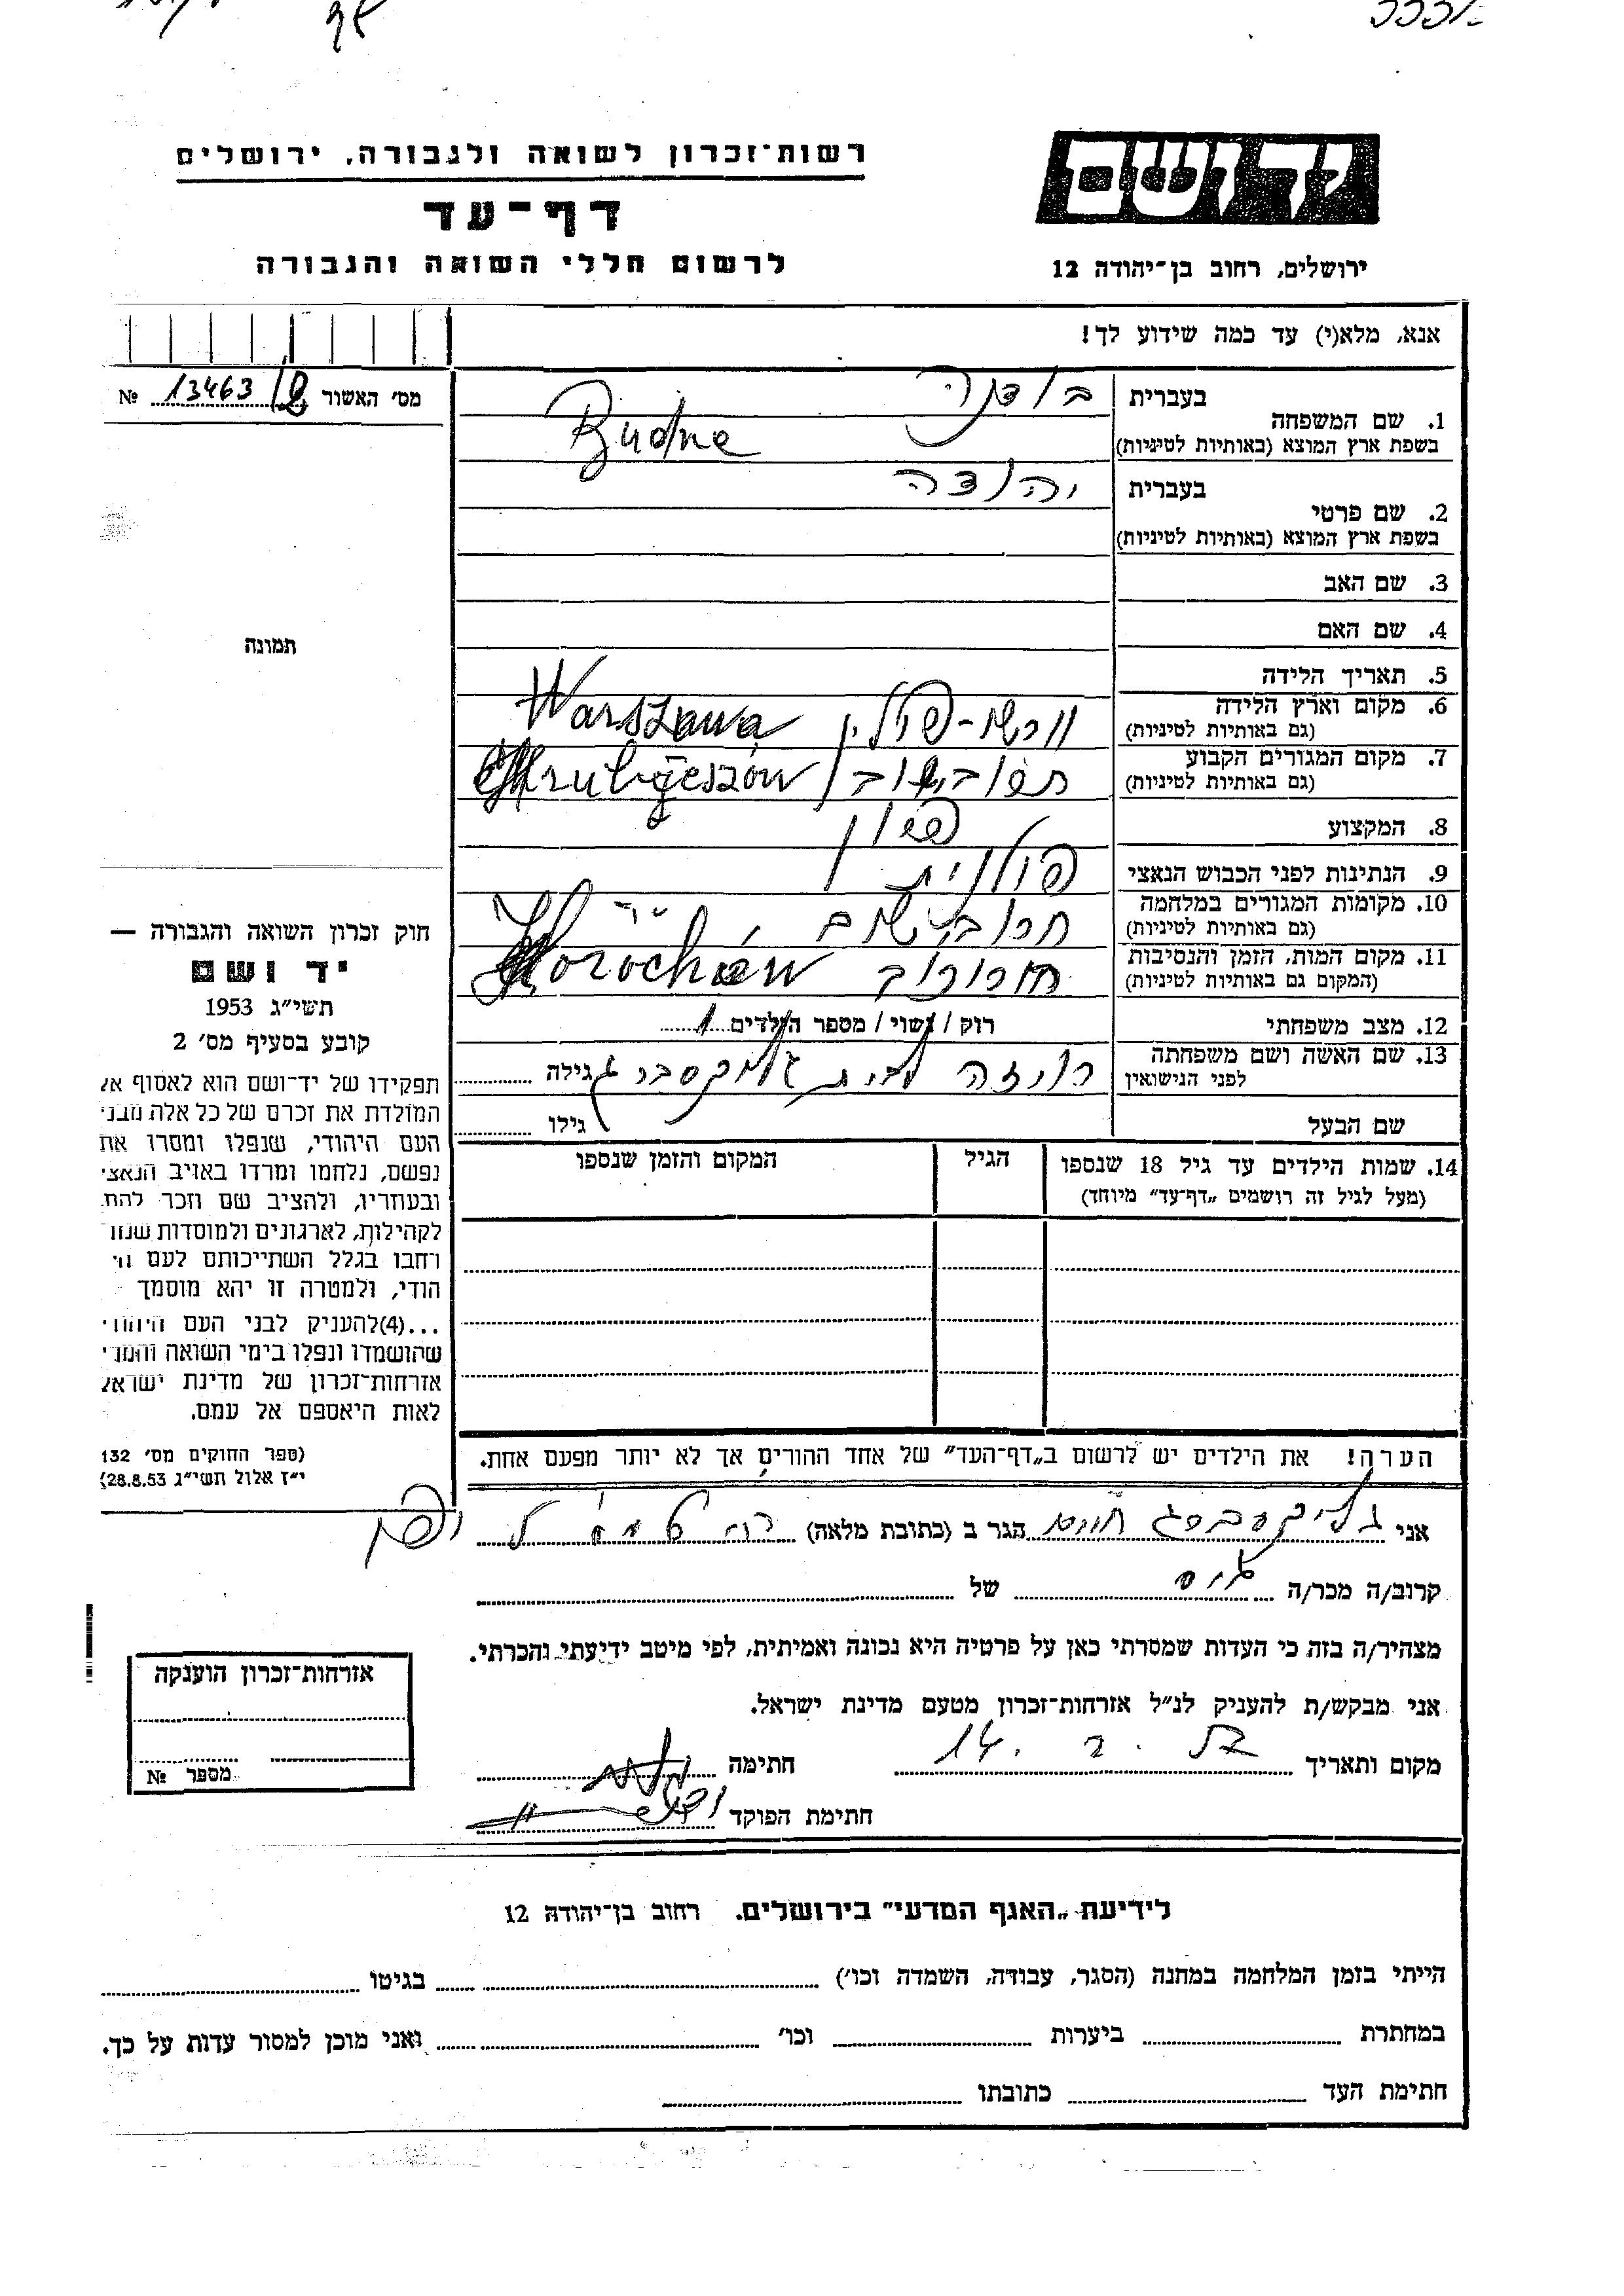 רשות־זכרון לשואה ולגבורה, ירושלים
דף־עד
לרשום חללי השואה והגבורה
ידושם
ירושלים, רחוב בן־יהודה 12
אנא, מלא(י) עד כמה שידוע לך!
מס׳ האשור 13463/ № 
1. שם המשפחה בעברית בודנה
בשפת ארץ המוצא (באותיות לטיניות) Budne
2. שם פרטי בעברית יהודה
בשפת ארץ המוצא (באותיות לטיניות)
3. שם האב
4. שם האם
5. תאריך הלידה
6. מקום וארץ הלידה (גם באותיות לטיניות) ורשו-פולין Warszawa
7. מקום המגורים הקבוע (גם באותיות לטיניות) Hrubieszów
8. המקצוע
9. הנתינות לפני הכבוש הנאצי פולנית
10. מקומות המגורים במלחמה (גם באותיות לטיניות)
11. מקום המות, הזמן והנסיבות (המקום גם באותיות לטיניות) חורוכוב Horochów
12. מצב משפחתי רוק / נשוי / מספר הילדים 1
13. שם האשה ושם משפחתה לפני הנישואין רויזה לבית גליקסברג גילה
שם הבעל גילו
14. שמות הילדים עד גיל 18 שנספו הגיל המקום והזמן שנספו
(מעל לגיל זה רושמים „דף־עד״ מיוחד)
הערה! את הילדים יש לרשום ב„דף־העד״ של אחד ההורים אך לא יותר מפעם אחת.
תמונה
חוק זכרון השואה והגבורה —
יד ושם
תשי״ג 1953
קובע בסעיף מס׳ 2
תפקידו של יד־ושם הוא לאסוף אל
המולדת את זכרם של כל אלה מבני
העם היהודי, שנפלו ומסרו את
נפשם, נלחמו ומרדו באויב הנאצי
ובעוזריו, ולהציב שם וזכר להם
לקהילות, לארגונים ולמוסדות שנח־
רחבו בגלל השתייכותם לעם הי־
הודי, ולמטרה זו יהא מוסמך
...(4)להעניק לבני העם היהודי
שהושמדו ונפלו בימי השואה והמרי
אזרחות־זכרון של מדינת ישראל
לאות היאספם אל עמם.
(ספר החוקים מס׳ 132
י״ז אלול תשי״ג 28.8.53)
אני גליקסברג חיים הגר ב (כתובת מלאה)
קרוב/ה מכר/ה גיס של
מצהיר/ה בזה כי העדות שמסרתי כאן על פרטיה היא נכונה ואמיתית, לפי מיטב ידיעתי והכרתי.
אני מבקש/ת להעניק לנ״ל אזרחות־זכרון מטעם מדינת ישראל.
מקום ותאריך 14. 2. 57 חתימה
חתימת הפוקד
אזרחות־זכרון הוענקה
מספר №
לידיעת „האגף המדעי״ בירושלים. רחוב בן־יהודה 12
הייתי בזמן המלחמה במחנה (הסגר, עבודה, השמדה וכו׳) בגיטו
במחתרת ביערות וכו׳ ואני מוכן למסור עדות על כך.
חתימת העד כתובתו